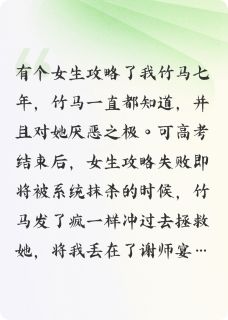 有个女生攻略了我竹马七
年，竹马一直都知道，并
且对她厌恶之极。可高考
结束后，女生攻略失败即
将被系统抹杀的时候，竹
马发了疯一样冲过去拯救
她，将我丢在了谢师宴…